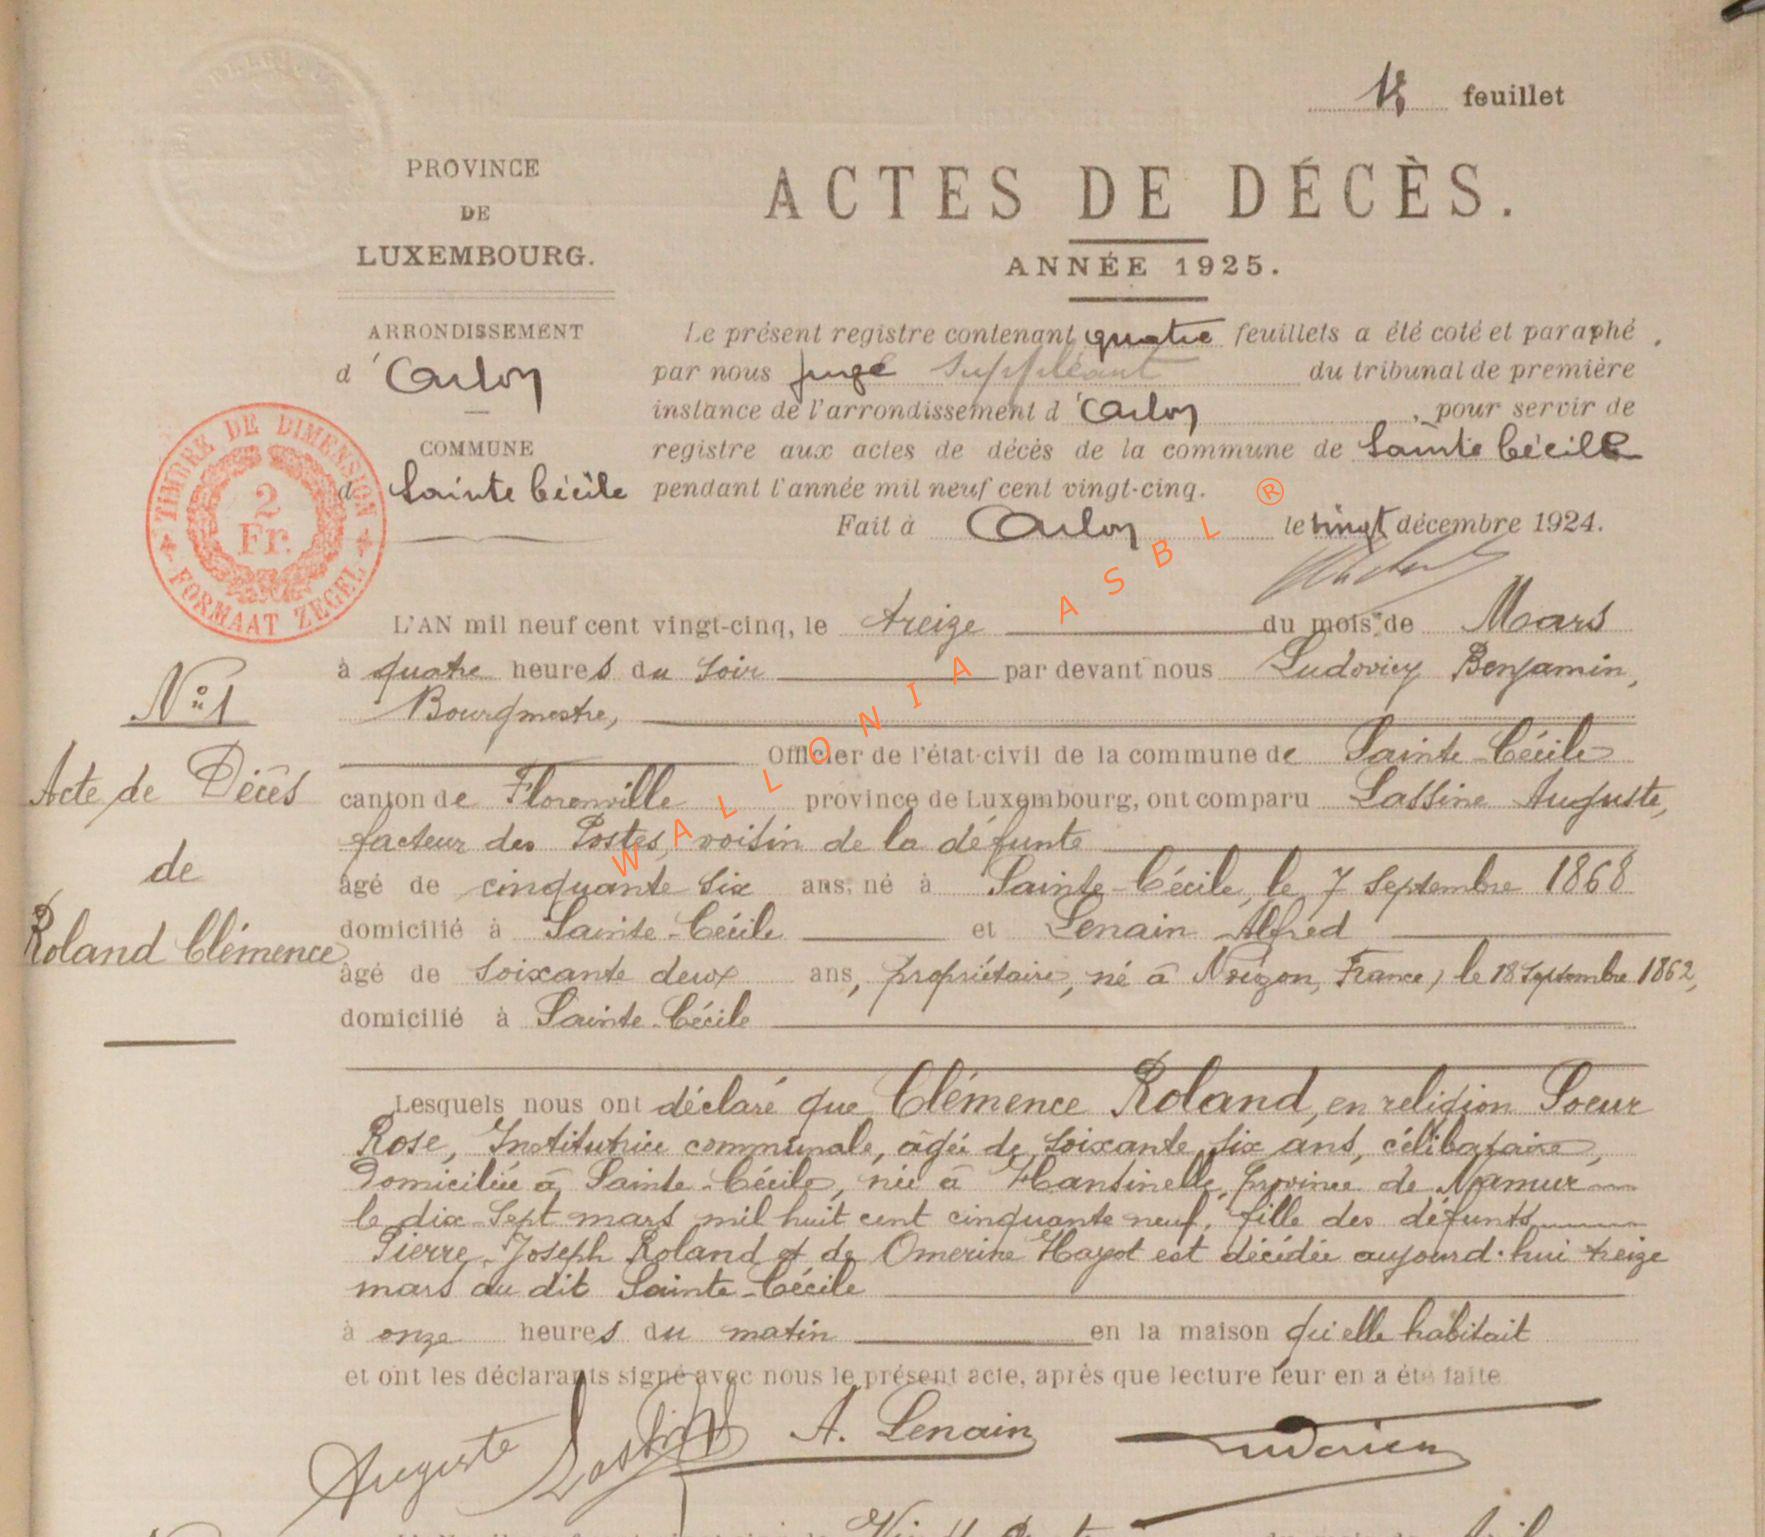 feuillet
PROVINCE
DE
LUXEMBOURG.
ACTES DE DÉCÈS.
ANNÉE 1925.
ARRONDISSEMENT
d'Arlon
COMMUNE
d Sainte Cécile
TIMBRE DE DIMENSION
2
Fr.
FORMAAT ZEGEL
Le présent registre contenant quatre feuillets a été coté et paraphé
par nous juge suppléant du tribunal de première
instance de l'arrondissement d'Arlon, pour servir de
registre aux actes de décès de la commune de Sainte Cécile
pendant l'année mil neuf cent vingt-cinq.
Fait à Arlon le vingt décembre 1924.
WALLONIA ASBL ®
N° 1
Acte de Décès
de
Roland Clémence
L'AN mil neuf cent vingt-cinq, le treize du mois de Mars
à quatre heures du soir par devant nous Ludovicy Benjamin,
Bourgmestre,
Officier de l'état-civil de la commune de Sainte-Cécile
canton de Florenville province de Luxembourg, ont comparu Lassine Auguste,
facteur des Postes, voisin de la défunte
âgé de cinquante six ans, né à Sainte-Cécile, le 7 Septembre 1868
domicilié à Sainte-Cécile et Lenain Alfred
âgé de soixante deux ans, propriétaire, né à France, le 18 Septembre 1862,
domicilié à Sainte-Cécile
Lesquels nous ont déclaré que Clémence Roland, en religion Soeur
Rose, Institutrice communale, âgée de soixante six ans, célibataire,
Domiciliée à Sainte-Cécile, née à Hansinelle, province de Namur
le dix-sept mars mil huit cent cinquante neuf, fille des défunts
Pierre-Joseph Roland et de Omerine Hayot est décédée aujourd'hui treize
mars au dit Sainte-Cécile
à onze heures du matin en la maison qu'elle habitait
et ont les déclarants signé avec nous le présent acte, après que lecture leur en a été faite
Auguste Lassine A. Lenain Ludovicy